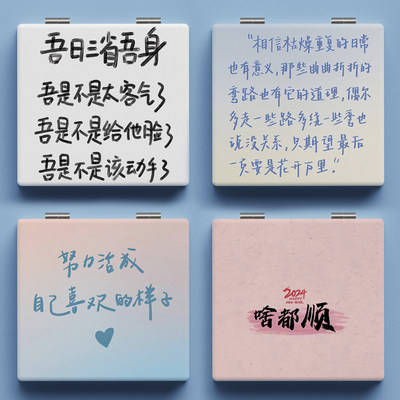 吾日三省吾身
吾是不是太客气了
吾是不是给他脸了
吾是不是该动手了
"相信枯燥重复的日常
也有意义，那些曲曲折折的
弯路也有它的道理，偶尔
多走一些路多绕一些弯也
说没关系，只期望最后
一定要是花开万里。"
努力活成
自己喜欢的样子
2024
HAPPY NEW YEAR
啥都顺